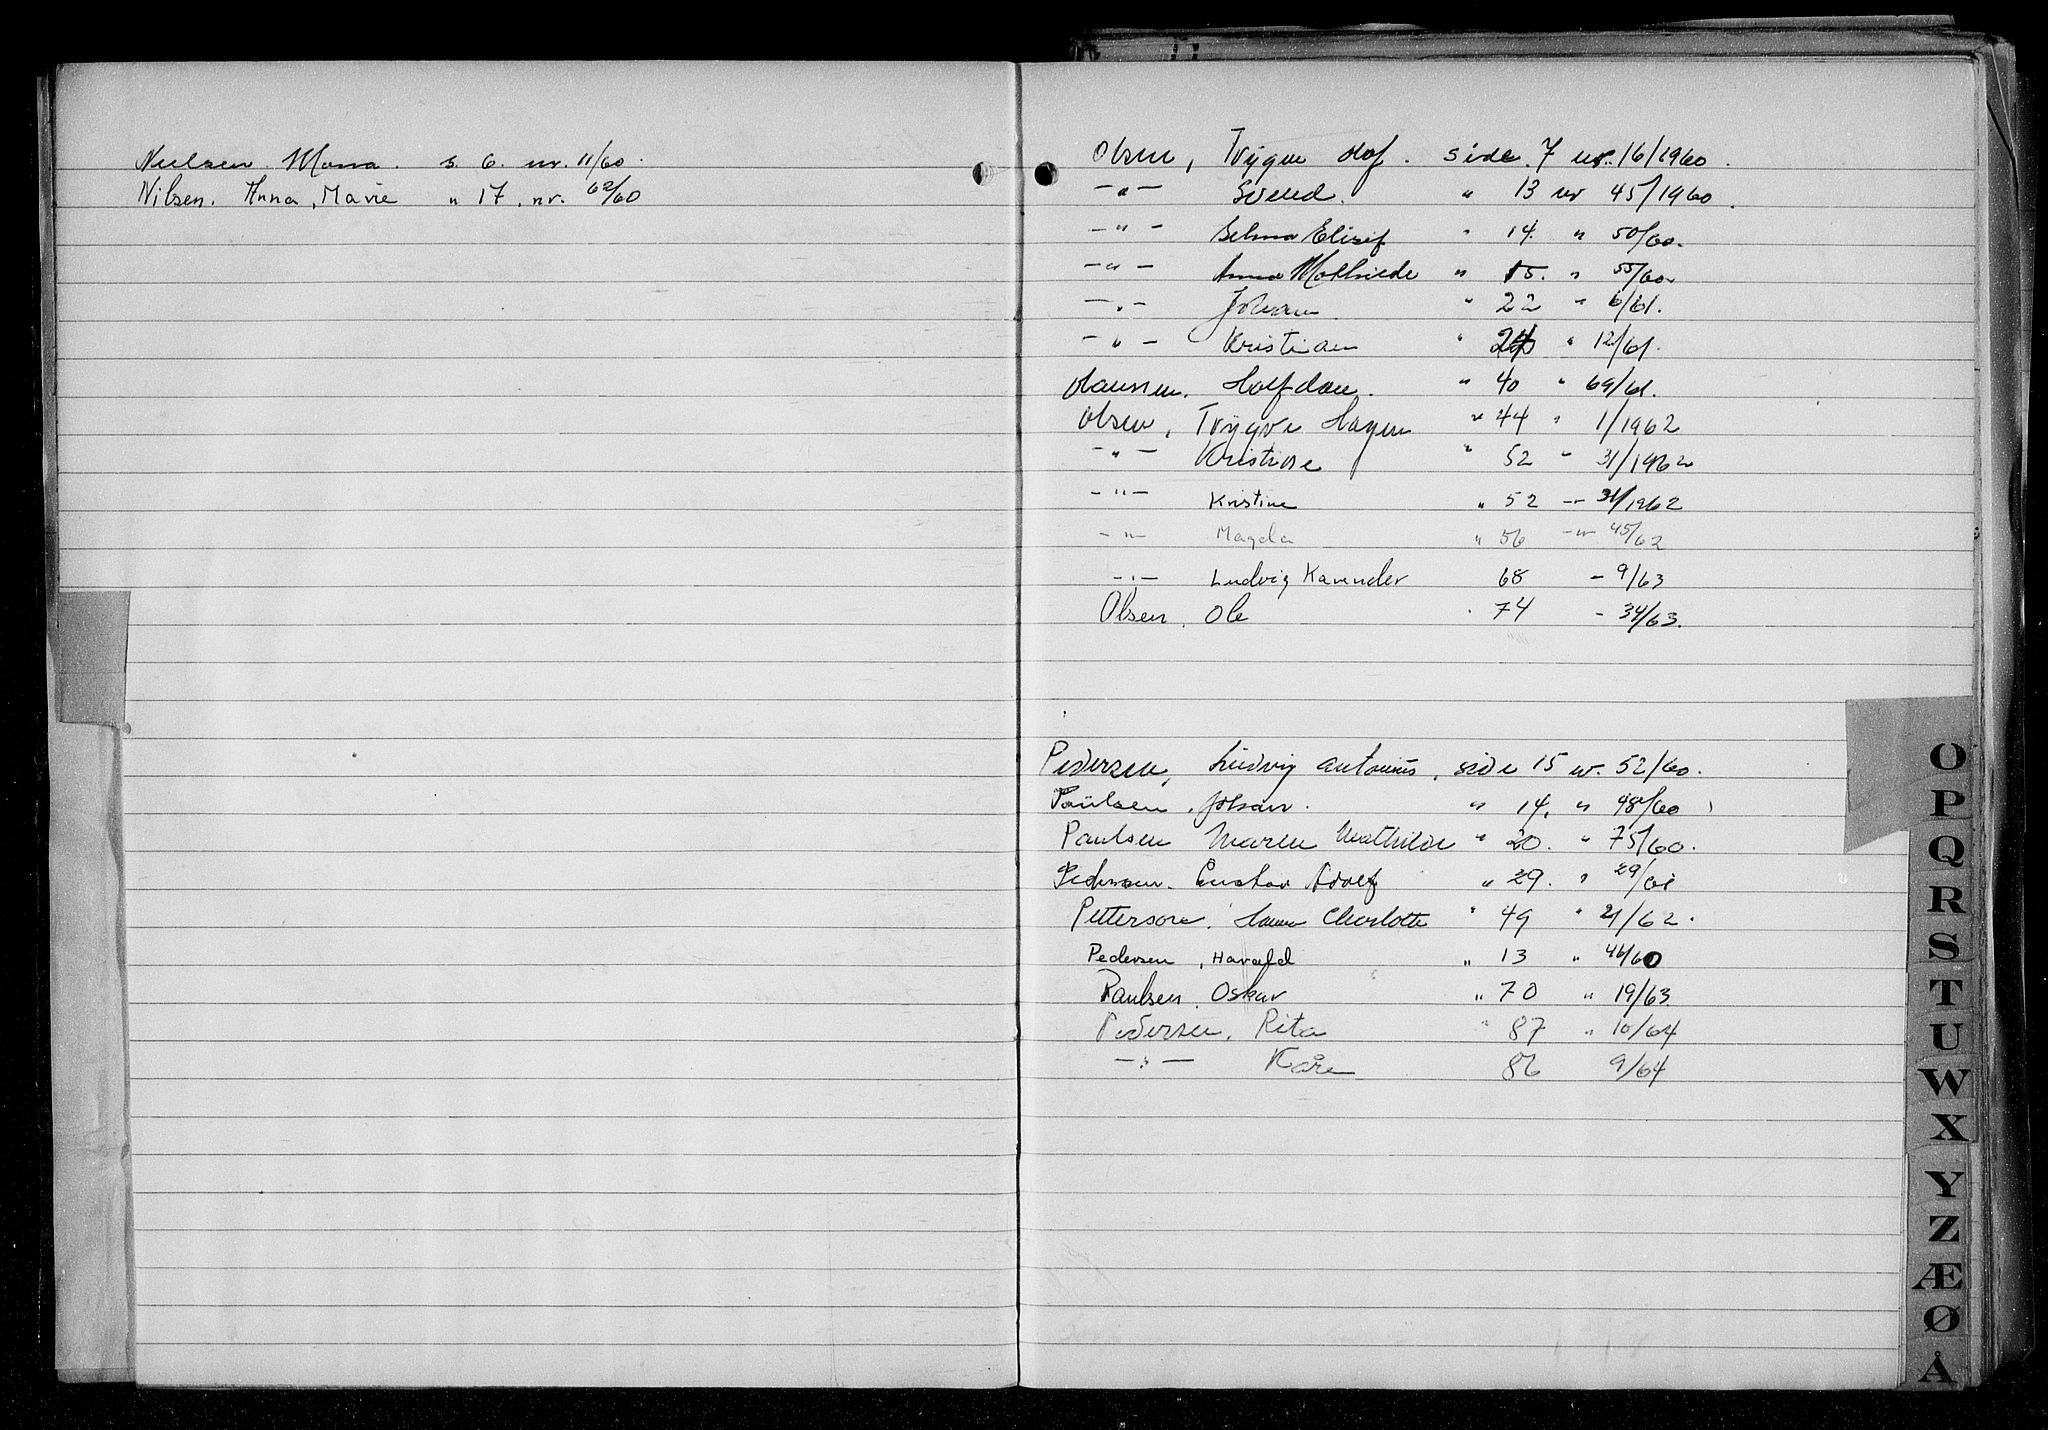 Nielsen Mona. s. 6. nr. 11/60.
Nilsen. Anna, Marie " 17. nr. 62/60
Olsen, Trygve Olaf. side. 7 nr. 16/1960.
—"— Svend. " 13 nr 45/1960.
—"— Selma Elisif " 14. " 50/60.
—"— Anna Mathilde " 15. " 55/60.
—"— Johan " 22 " 6/61.
—"— Kristian " 24 " 12/61.
Olaussen. Halfdan. " 40 " 69/61.
Olsen, Trygve Hagen " 44 " 1/1962
—"— Kristine " 52 " 31/1962
—"— Kristine " 52 —"— 31/1962
—"— Magda " 56 —"— 45/62
—"— Ludvig Kavender 68 – 9/63
Olsen. Ole . 74 – 34/63.
Pedersen, Ludvig Antonius, side 15 nr. 52/60.
Paulsen, Johan. " 14. " 48/60
Paulsen Maren Mathilde " 20. " 75/60.
Pedersen. Gustav Adolf " 29. " 29/61
Petterson. Charlotte " 49 " 21/62.
Pedersen, Harald " 13 " 46/60
Paulsen. Oskar " 70 " 19/63
Pedersen. Rita " 87 " 10/64
—"— Kåre 86 9/64
O
P
Q
R
S
T
U
W
X
Y
Z
Æ
Ø
Å